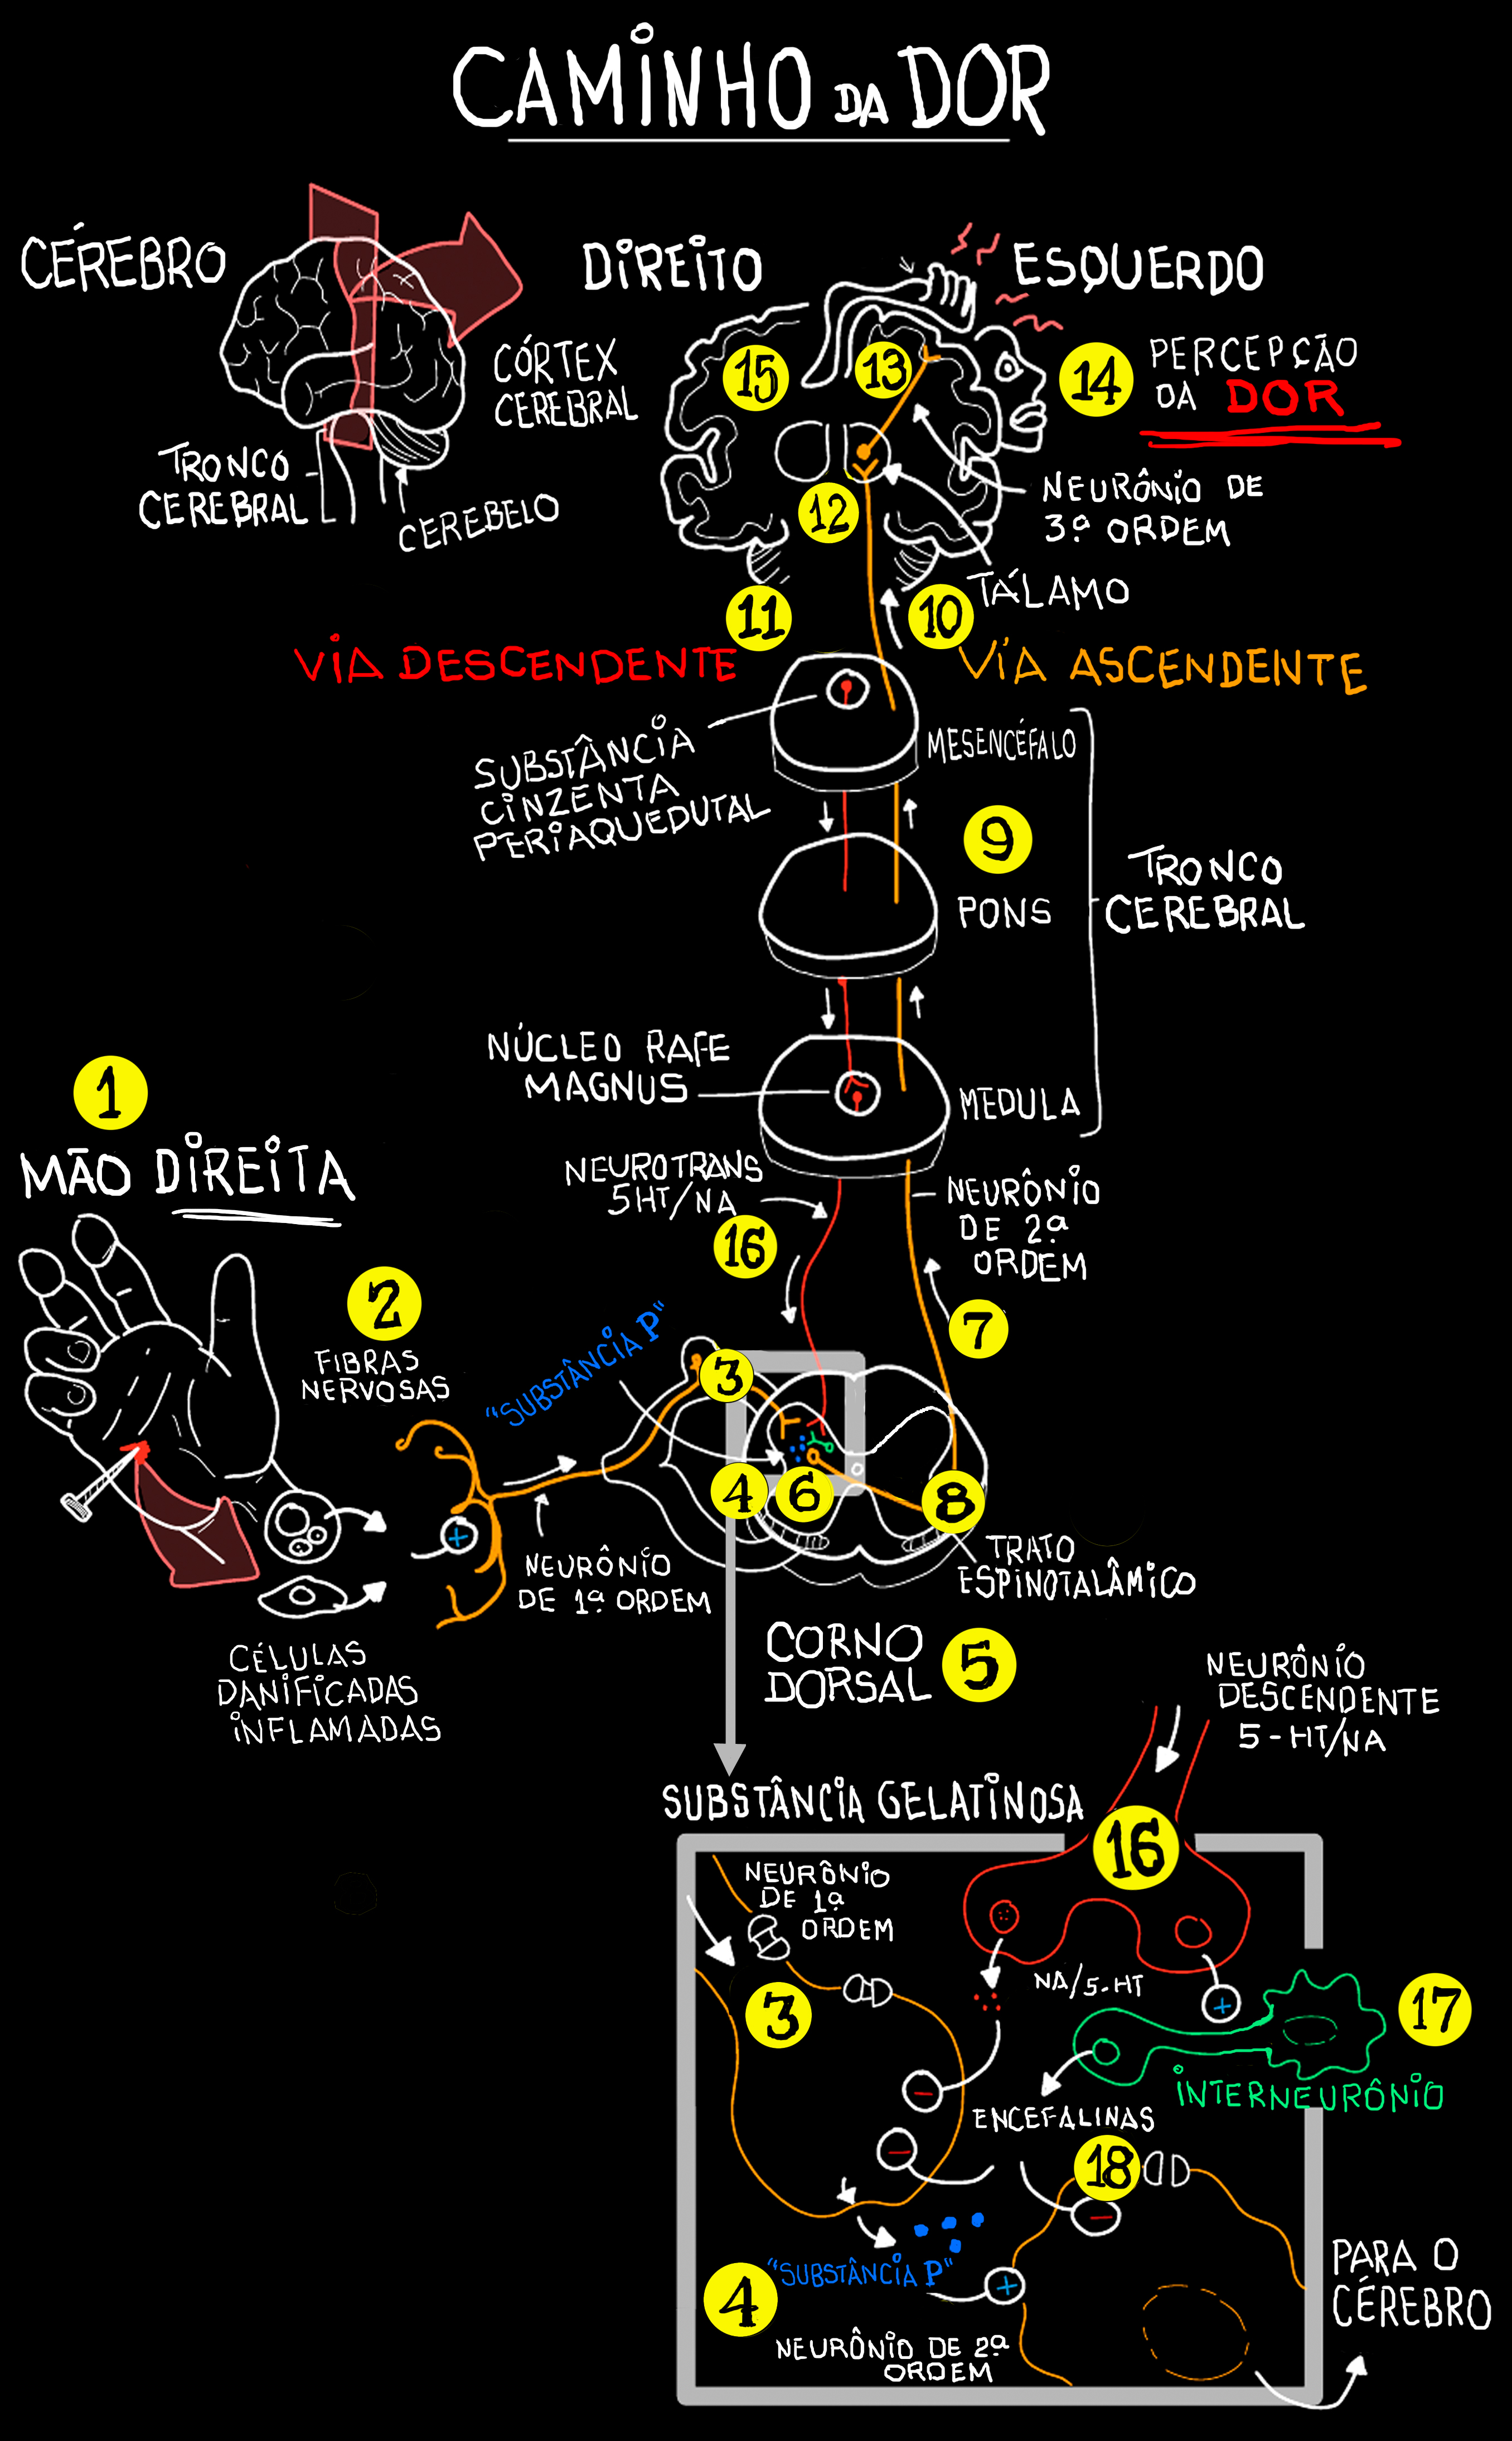 CAMINHO DA DOR
CÉREBRO
CÓRTEX
CEREBRAL
TRONCO
CEREBRAL
CEREBELO
DIREITO
ESQUERDO
15
13
14
PERCEPÇÃO
DA DOR
12
NEURÔNIO DE
3ª ORDEM
TÁLAMO
11
10
VIA DESCENDENTE
VÍA ASCENDENTE
SUBSTÂNCIA
CINZENTA
PERIAQUEDUTAL
MESENCÉFALO
9
PONS
TRONCO
CEREBRAL
NÚCLEO RAFE
MAGNUS
MEDULA
1
MÃO DIREITA
NEUROTRANS
5HT/NA
16
NEURÔNIO
DE 2ª
ORDEM
7
2
FIBRAS
NERVOSAS
"SUBSTÂNCIA P"
3
4
6
8
+
NEURÔNIO
DE 1ª ORDEM
TRATO
ESPINOTALÂMICO
CÉLULAS
DANIFICADAS
INFLAMADAS
CORNO
DORSAL
5
NEURÔNIO
DESCENDENTE
5-HT/NA
SUBSTÂNCIA GELATINOSA
16
NEURÔNIO
DE 1ª
ORDEM
3
NA/5-HT
+
17
INTERNEURÔNIO
−
ENCEFALINAS
−
18
−
"SUBSTÂNCIA P"
4
+
NEURÔNIO DE 2ª
ORDEM
PARA O
CÉREBRO